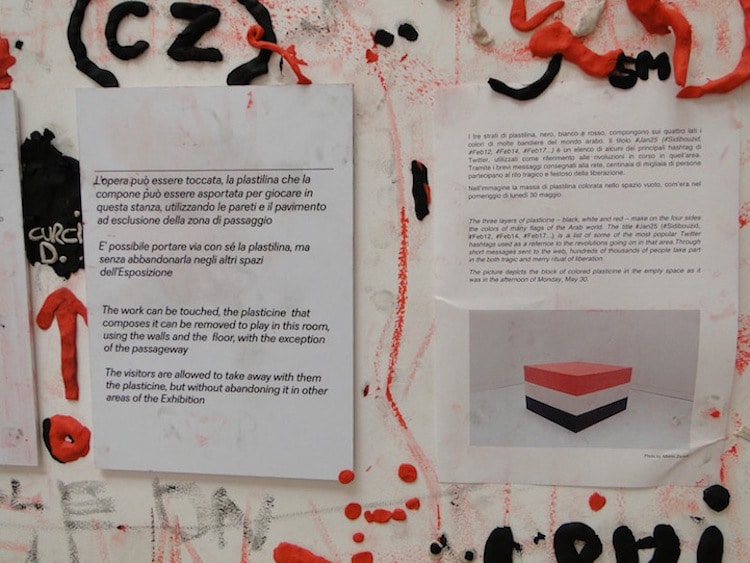 (CZ)
SM
CURCI
D.
L'opera può essere toccata, la plastilina che la
compone può essere asportata per giocare in
questa stanza, utilizzando le pareti e il pavimento
ad esclusione della zona di passaggio
E' possibile portare via con sé la plastilina, ma
senza abbandonarla negli altri spazi
dell'Esposizione
The work can be touched, the plasticine that
composes it can be removed to play in this room,
using the walls and the floor, with the exception
of the passageway
The visitors are allowed to take away with them
the plasticine, but without abandoning it in other
areas of the Exhibition
I tre strati di plastilina, nero, bianco e rosso, compongono sui quattro lati i
colori di molte bandiere del mondo arabo. Il titolo #Jan25 (#Sidibouzid,
#Feb12, #Feb14, #Feb17...) è un elenco di alcuni dei principali hashtag di
Twitter, utilizzati come riferimento alle rivoluzioni in corso in quell'area.
Tramite i brevi messaggi consegnati alla rete, centinaia di migliaia di persone
partecipano al rito tragico e festoso della liberazione.
Nell'immagine la massa di plastilina colorata nello spazio vuoto, com'era nel
pomeriggio di lunedì 30 maggio.
The three layers of plasticine – black, white and red – make on the four sides
the colors of many flags of the Arab world. The title #Jan25 (#Sidibouzid,
#Feb12, #Feb14, #Feb17...) is a list of some of the most popular Twitter
hashtags used as a refernce to the revolutions going on in that area.Through
short messages sent to the web, hundreds of thousands of people take part
in the both tragic and merry ritual of liberation.
The picture depicts the block of colored plasticine in the empty space as it
was in the afternoon of Monday, May 30.
Photo by